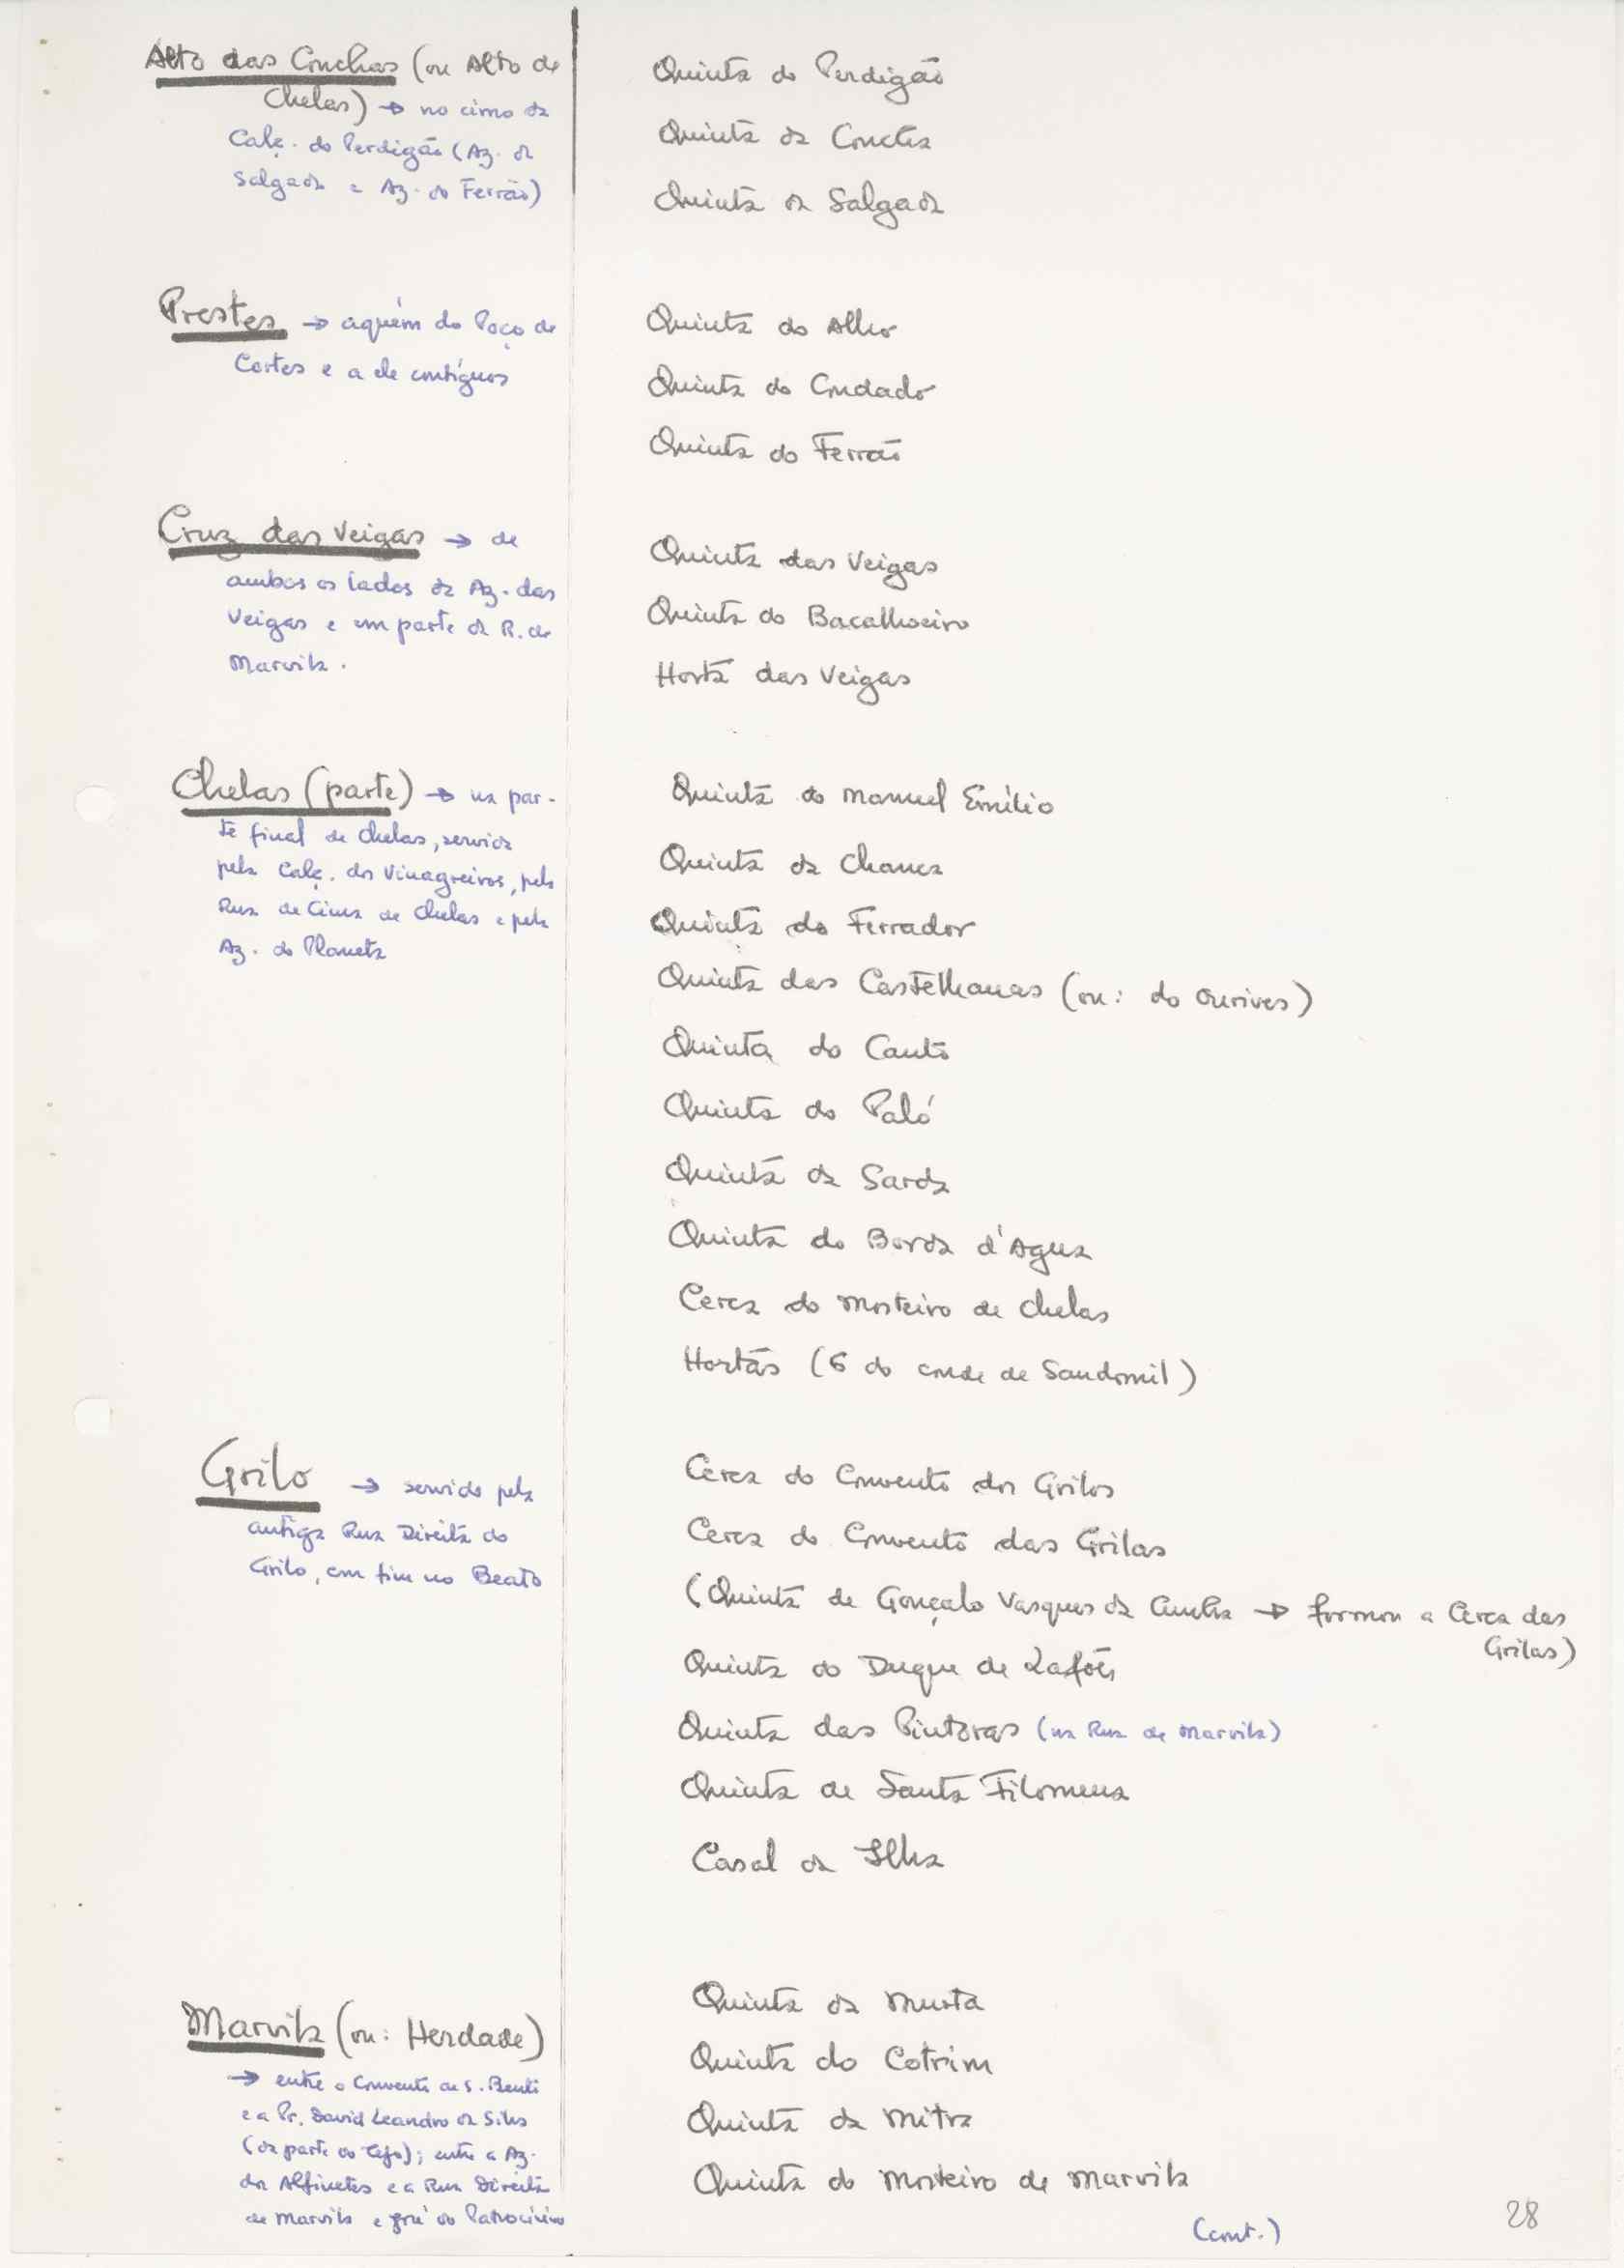 Alto das Conchas (ou Alto de
Chelas) → no cimo da
Calç. do Perdigão (Az. da
Salgada e Az. do Ferrão)
Quinta do Perdigão
Quinta da Concha
Quinta da Salgada
Prestes → aquém do Poço de
Cortes e a ele contíguos
Quinta do Alho
Quinta do Condado
Quinta do Ferrão
Cruz das Veigas → de
ambos os lados da Az. das
Veigas e em parte da R. de
Marvila.
Quinta das Veigas
Quinta do Bacalhoeiro
Horta das Veigas
Chelas (parte) → na par-
te final de Chelas, servida
pela Calç. dos Vinagreiros, pela
Rua de Cima de Chelas e pela
Az. do Planeta
Quinta do Manuel Emílio
Quinta da Chanca
Quinta do Ferrador
Quinta das Castelhanas (ou: do Ourives)
Quinta do Canto
Quinta do Paló
Quinta da Sarda
Quinta do Borda d'Agua
Cerca do Mosteiro de Chelas
Hortas (6 do conde de Sandomil)
Grilo → servido pela
antiga Rua Direita do
Grilo, com fim no Beato
Cerca do Convento dos Grilos
Cerca do Convento das Grilas
(Quinta de Gonçalo Vasques da Cunha → formou a Cerca das
Grilas)
Quinta do Duque de Lafões
Quinta das Pintoras (na Rua de Marvila)
Quinta de Santa Filomena
Casal da Ilha
Marvila (ou: Herdade)
→ entre o Convento de S. Bento
e a Pr. David Leandro da Silva
(da parte do Tejo); entre a Az.
dos Alfinetes e a Rua Direita
de Marvila e do Patrocínio
Quinta da Murta
Quinta do Cotrim
Quinta da Mitra
Quinta do Mosteiro de Marvila
(cont.)
28